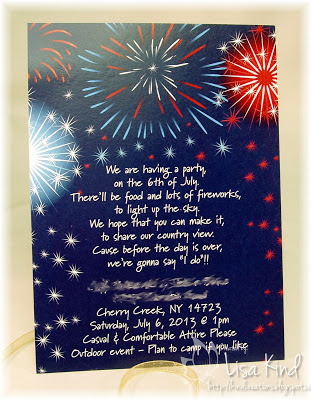 We are having a party,
on the 6th of July.
There'll be food and lots of fireworks,
to light up the sky.
We hope that you can make it,
to share our country view.
Cause before the day is over,
we're gonna say "I do"!!
Cherry Creek, NY 14723
Saturday, July 6, 2013 @ 1pm
Casual & Comfortable Attire Please
Outdoor event - Plan to camp if you like
Lisa Kind